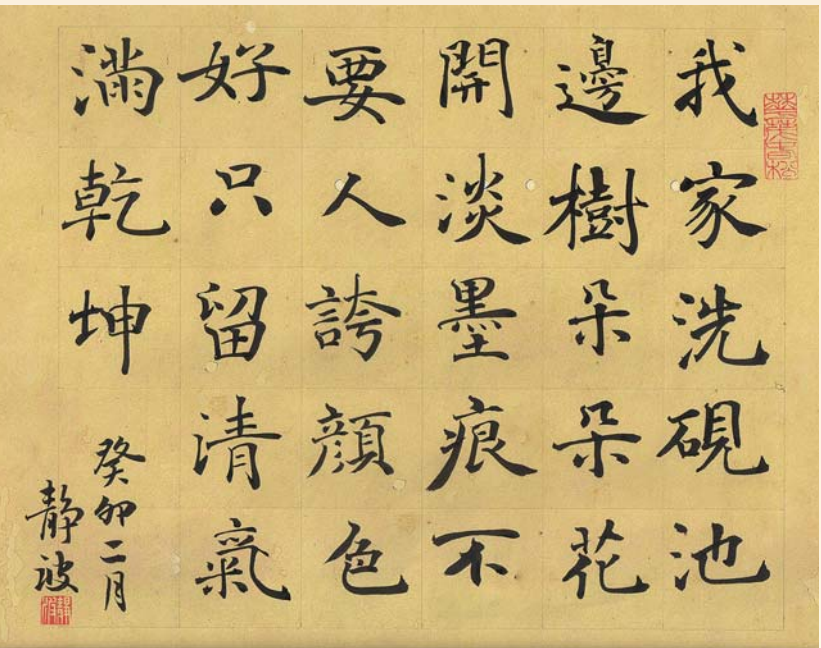 我家洗硯池
邊樹朵朵花
開淡墨痕不
要人誇顏色
好只留清氣
滿乾坤
癸卯二月
靜波